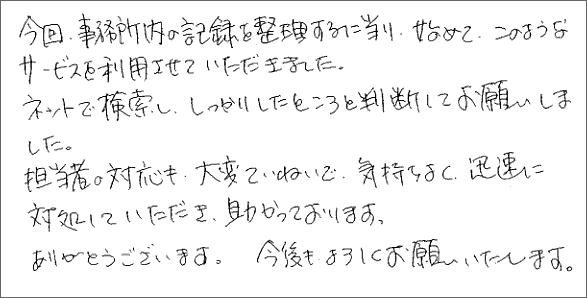 今回、事務所内の記録を整理するに当り、始めて、このような
サービスを利用させていただきました。
ネットで検索し、しっかりしたところと判断してお願いしま
した。
担当者の対応も、大変ていねいで、気持ちよく、迅速に
対処していただき、助かっております。
ありがとうございます。 今後もよろしくお願いいたします。